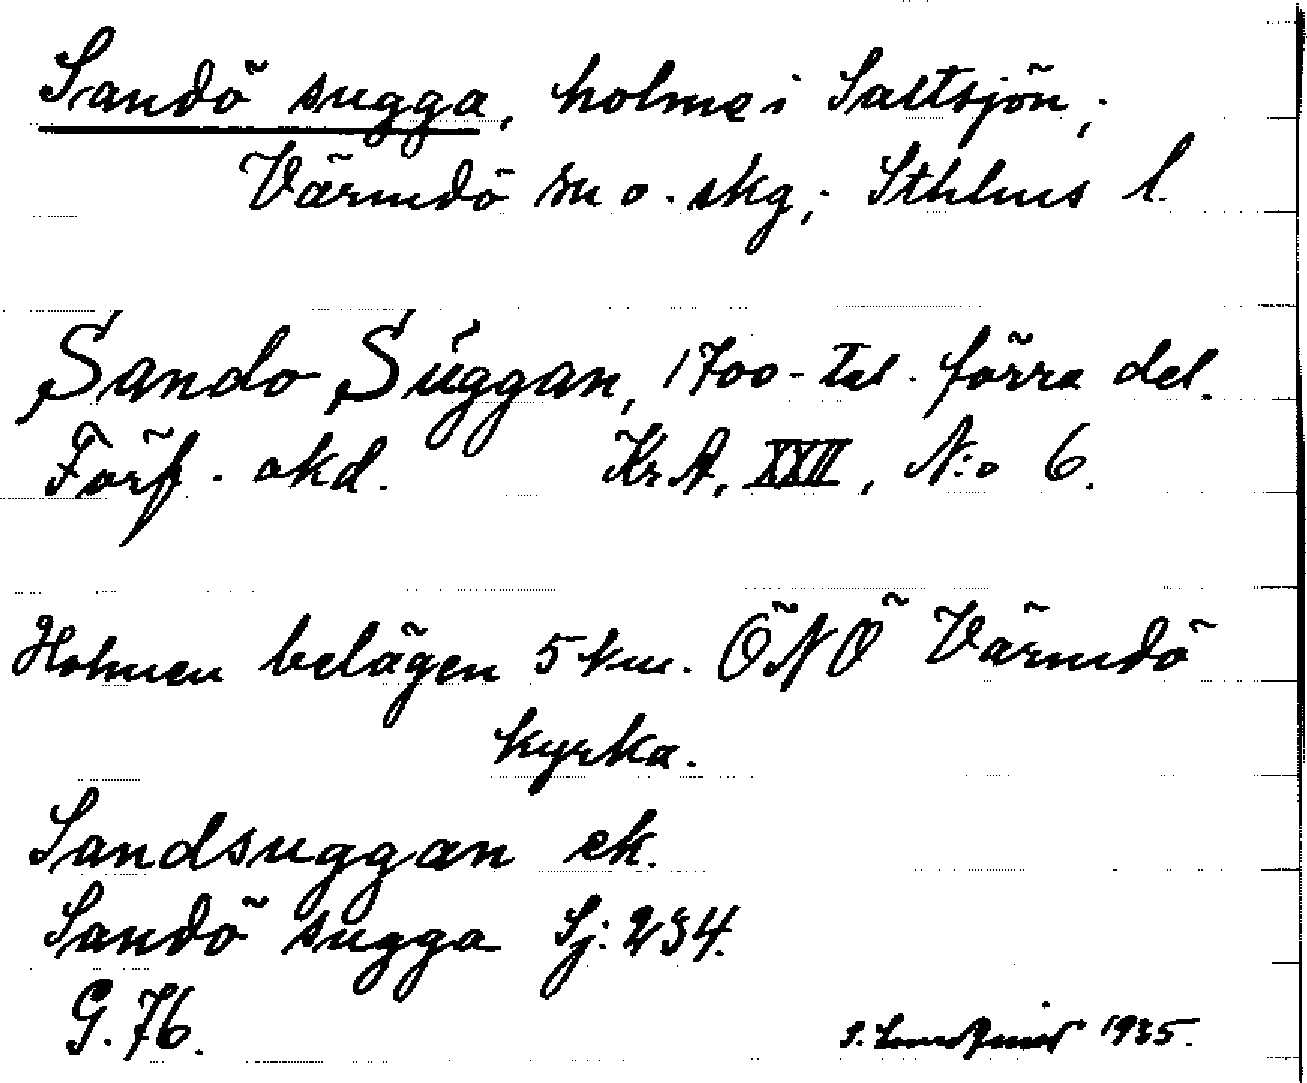 Sandö sugga, holme i Saltsjön,.
Värmdö sn o. skg,. Sthlms l.
Sando Suggan, 1700-tal. förra del.
Förf. okd. KrA, XXII, N:o 6.
Holmen belägen 5 km. ÖNÖ Värmdö
kyrka.
Sandsuggan ek.
Sandö sugga Sj: 234.
G. 76.
1935.